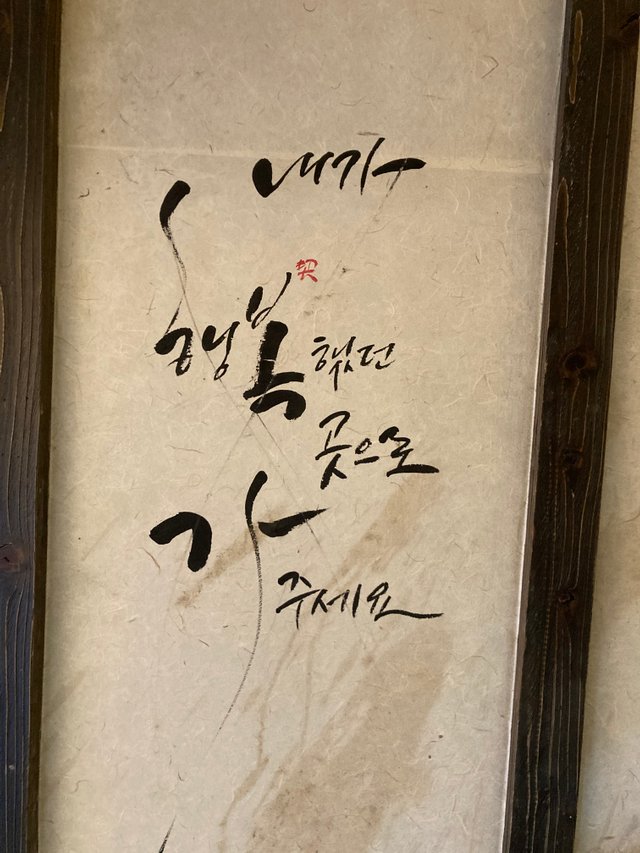 내가
행복했던
곳으로
가
주세요